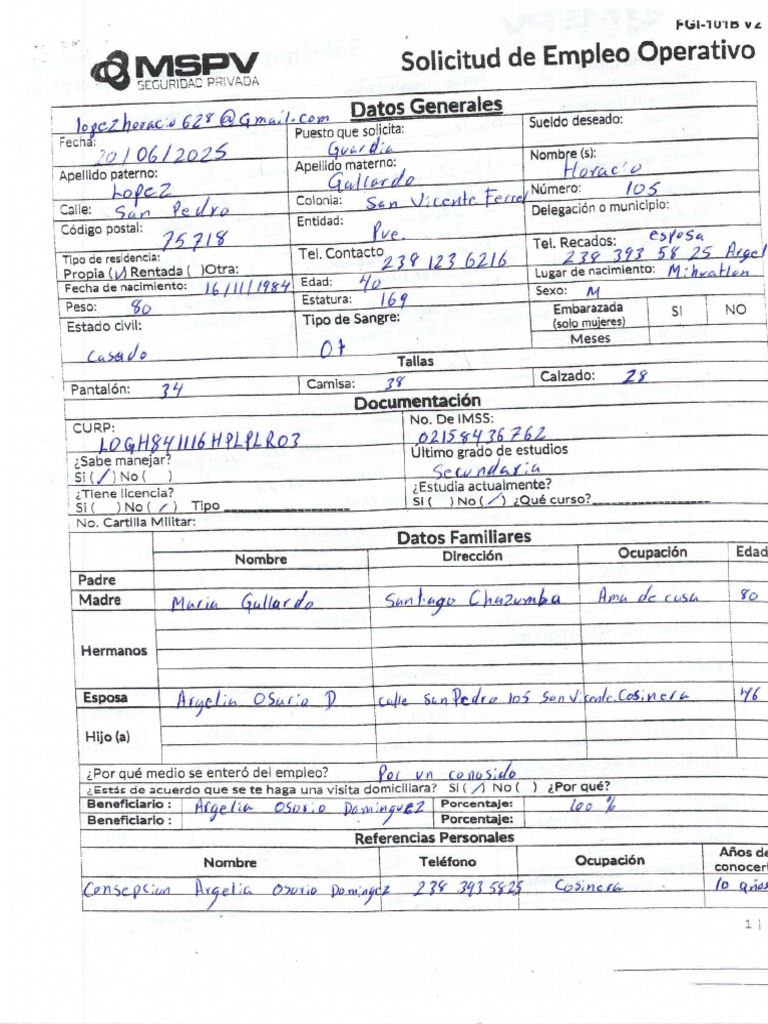 FGI-101B V2
MSPV
SEGURIDAD PRIVADA
Solicitud de Empleo Operativo
lopezhoracio628@Gmail.com
Datos Generales
Fecha: 20/06/2025
Puesto que solicita: Guardia
Sueldo deseado:
Apellido paterno: Lopez
Apellido materno: Gallardo
Nombre (s): Horacio
Calle: San Pedro
Colonia: San Vicente Ferrer
Número: 105
Código postal: 75718
Entidad: Pue.
Delegación o municipio:
Tipo de residencia:
Propia (√) Rentada ( )Otra:
Tel. Contacto 238 123 6216
Tel. Recados: esposa
238 393 58 25 Argel
Fecha de nacimiento: 16/11/1984
Edad: 40
Lugar de nacimiento: Mihuatlan
Peso: 80
Estatura: 169
Sexo: M
Estado civil: Casado
Tipo de Sangre: O+
Embarazada (solo mujeres) SI NO
Meses
Tallas
Pantalón: 34 Camisa: 38 Calzado: 28
Documentación
CURP: LOGH841116HPLPLR03
No. De IMSS: 02158436762
¿Sabe manejar?
Si (/) No ( )
Último grado de estudios
Secundaria
¿Tiene licencia?
Si ( ) No (/) Tipo
¿Estudia actualmente?
Si ( ) No (/) ¿Qué curso?
No. Cartilla Militar:
Datos Familiares
Nombre Dirección Ocupación Edad
Padre
Madre Maria Gallardo Santiago Chazumba Ama de casa 80
Hermanos
Esposa Argelia Osorio D calle San Pedro 105 San Vicente Cosinera 46
Hijo (a)
¿Por qué medio se enteró del empleo? Por un conosido
¿Estás de acuerdo que se te haga una visita domiciliara? Si (/) No ( ) ¿Por qué?
Beneficiario : Argelia Osorio Dominguez Porcentaje: 100 %
Beneficiario : Porcentaje:
Referencias Personales
Nombre Teléfono Ocupación Años de conocerl
Consepcion Argelia Osorio Domingez 238 393 5825 Cosinera 10 años
1 |